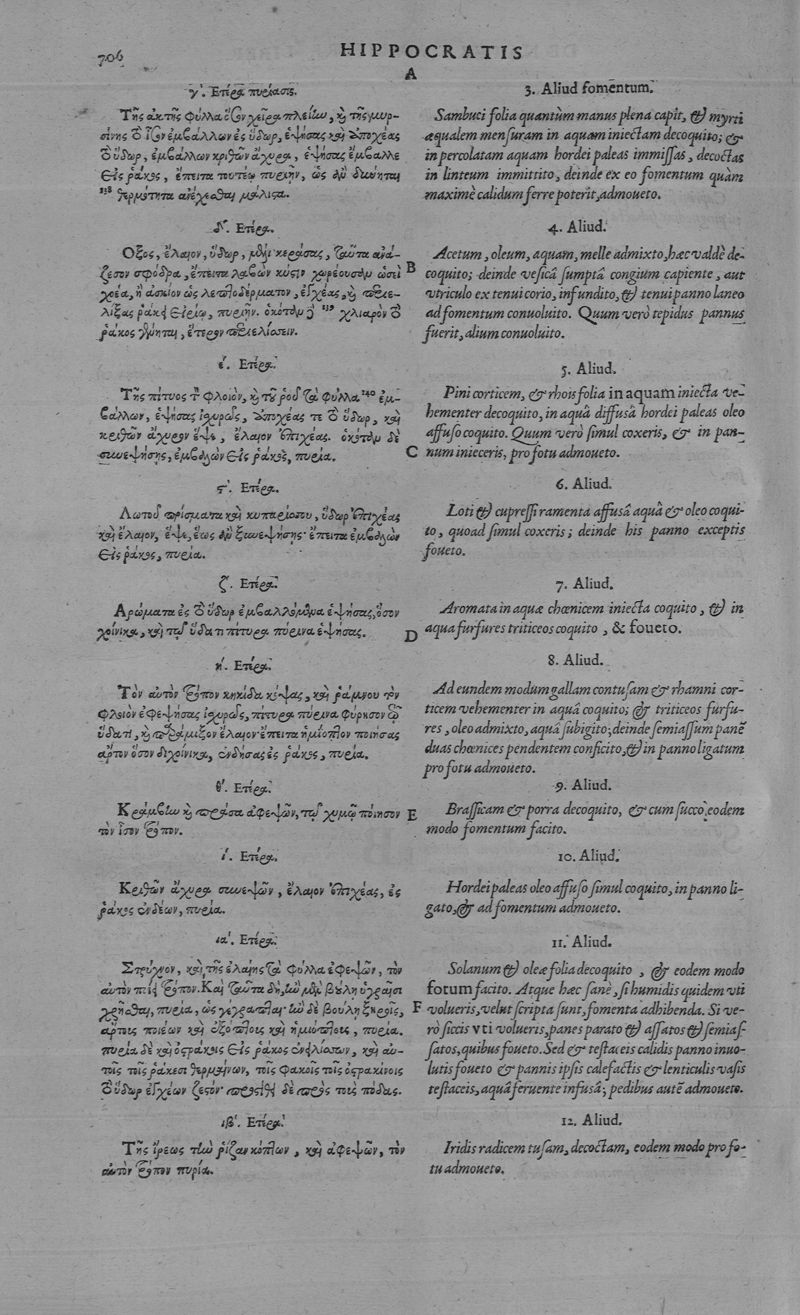 706
HIPPOCRATIS
A
γʹ. Ἑτέρα πυρίασις.
Τῆς ἀκτῆς φύλλα ὅσον χεῖρα πλείω, καὶ τῆς μυρ-
σίνης τὸ ἴσον ἐμβάλλων ἐς ὕδωρ, ἑψήσας καὶ ἀποχέας
τὸ ὕδωρ, ἐμβάλλων κριθῶν ἄχυρα, ἑψήσας ἔμβαλλε
εἰς ῥάκος, ἔπειτα τουτέῳ πυριῆν, ὡς ἂν δύνηται
138 θερμότητα ἀνέχεσθαι μάλιστα.
δʹ. Ἑτέρα.
Ὄξος, ἔλαιον, ὕδωρ, μέλι κεράσας, ταῦτα ἀνά-
ζεσον σφόδρα, ἔπειτα λαβὼν κύστιν χωρέουσαν ὡσεὶ
χοέα, ἢ ἀσκίον ὡς λεπτοδέρματον, ἐγχέας, καὶ περιε-
λίξας ῥάκει εἰρίῳ, πυριῆν. ὁκόταν δὲ 139 χλιαρὸν τὸ
ῥάκος γένηται, ἕτερον περιελίσσειν.
εʹ. Ἑτέρα.
Τῆς πίτυος τὸν φλοιὸν, καὶ τοῦ ῥοῦ τὰ φύλλα 140 ἐμ-
βάλλων, ἑψήσας ἰσχυρῶς, ἀποχέας τε τὸ ὕδωρ, καὶ
κριθῶν ἄχυρον ἕψε, ἔλαιον ἐπιχέας. ὁκόταν δὲ
συνεψήσῃς, ἐμβαλὼν εἰς ῥάκος, πυρία.
ϛʹ. Ἑτέρα.
Λωτοῦ πρίσματα καὶ κυπαρίσσου, ὕδωρ ἐπιχέας
καὶ ἔλαιον, ἕψε, ἕως ἂν ξυνεψήσῃς· ἔπειτα ἐμβαλὼν
εἰς ῥάκος, πυρία.
ζʹ. Ἑτέρα.
Ἀρώματα ἐς τὸ ὕδωρ ἐμβαλλόμενα ἑψήσας, ὅσον
χοίνικα, καὶ τῷ ὕδατι πίτυρα πύρινα ἑψήσας.
ηʹ. Ἑτέρα.
Τὸν αὐτὸν τρόπον κηκίδα κόψας, καὶ ῥάμνου τὸν
φλοιὸν ἐφεψήσας ἰσχυρῶς, πίτυρα πύρινα φύρησον τῷ
ὕδατι, καὶ παράμιξον ἔλαιον· ἔπειτα ἡμίοπτον ποιήσας
ἄρτον ὅσον διχοίνικα, ἐνδήσας ἐς ῥάκος, πυρία.
θʹ. Ἑτέρα.
Κράμβην καὶ πράσα ἀφεψῶν, τῷ χυμῷ ποίησον
τὸν ἴσον τρόπον.
ιʹ. Ἑτέρα.
Κριθῶν ἄχυρα συνεψῶν, ἔλαιον ἐπιχέας, ἐς
ῥάκος ἐνδέων, πυρία.
ιαʹ. Ἑτέρα.
Στρύχνον, καὶ τῆς ἐλαίης τὰ φύλλα ἐφεψῶν, τὸν
αὐτὸν τρόπον. Καὶ ταῦτα δὴ, ἢν μὲν βούλῃ ὑγρᾶισι
χρῆσθαι, πυρία, ὡς γέγραπται· ἢν δὲ βούλῃ ξηρῇς,
ἄρτους ποιέων καὶ ἐξόπτους καὶ ἡμιόπτους, πυρία.
πυρία δὲ καὶ ὀστράκοις εἰς ῥάκος ἐνειλίσσων, καὶ αὐ-
τοῖς τοῖς ῥάκεσι θερμαίνων, τοῖς φακοῖς τοῖς ὀστρακίνοις
τὸ ὕδωρ ἐγχέων ζεστόν· προστίθει δὲ πρὸς τοὺς πόδας.
ιβʹ. Ἑτέρα.
Τῆς ἴρεως τὴν ῥίζαν κόπτων, καὶ ἀφεψῶν, τὸν
αὐτὸν τρόπον πυρία.
3. Aliud fomentum.
Sambuci folia quantùm manus plena capit, & myrti
æqualem mensuram in aquam iniectam decoquito; &
in percolatam aquam hordei paleas immissas, decoctas
in linteum immittito, deinde ex eo fomentum quàm
maximè calidum ferre poterit, admoueto.
4. Aliud.
Acetum, oleum, aquam, melle admixto, hæc valdè de-
B
coquito; deinde vesicâ sumptâ congium capiente, aut
vtriculo ex tenui corio, infundito, & tenui panno laneo
ad fomentum conuoluito. Quum verò tepidus pannus
fuerit, alium conuoluito.
5. Aliud.
Pini corticem, & rhois folia in aquam iniecta ve-
hementer decoquito, in aquâ diffusâ hordei paleas oleo
affuso coquito. Quum verò simul coxeris, & in pan-
C
num inieceris, pro fotu admoueto.
6. Aliud.
Loti & cupressi ramenta affusâ aquâ & oleo coqui-
to, quoad simul coxeris; deinde his panno exceptis
foueto.
7. Aliud.
Aromata in aquæ chœnicem iniecta coquito, & in
D
aqua furfures triticeos coquito, & foueto.
8. Aliud.
Ad eundem modum gallam contusam & rhamni cor-
ticem vehementer in aquâ coquito; & triticeos furfu-
res, oleo admixto, aquâ subigito; deinde semiassum panē
duas chœnices pendentem conficito, & in panno ligatum
pro fotu admoueto.
9. Aliud.
E
Brassicam & porra decoquito, & cum succo, eodem
modo fomentum facito.
10. Aliud.
Hordei paleas oleo affuso simul coquito, in panno li-
gato, & ad fomentum admoueto.
11. Aliud.
Solanum & oleæ folia decoquito, & eodem modo
fotum facito. Atque hæc sanè, si humidis quidem vti
F
volueris, velut scripta sunt, fomenta adhibenda. Si ve-
rò siccis vti volueris, panes parato & assatos & semiaf-
satos, quibus foueto. Sed & testaceis calidis panno inuo-
lutis foueto & pannis ipsis calefactis & lenticulis vasis
testaceis, aquâ feruente infusâ; pedibus autē admoueto.
12. Aliud.
Iridis radicem tusam, decoctam, eodem modo pro fo-
tu admoueto.